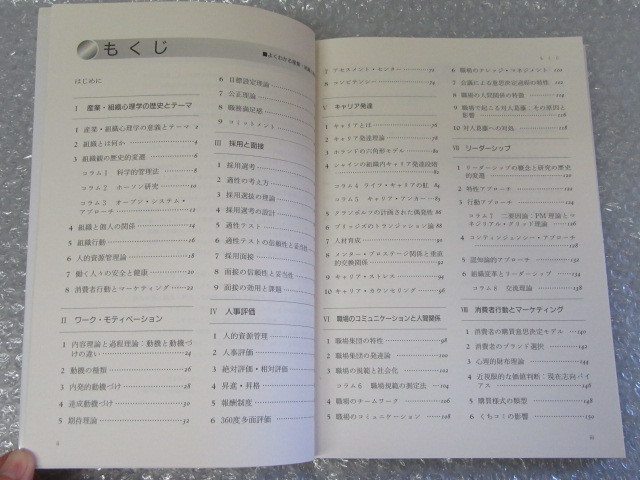 もくじ
■よくわかる産業・組織
はじめに
I 産業・組織心理学の歴史とテーマ
1 産業・組織心理学の意義とテーマ 2
2 組織とは何か 4
3 組織観の歴史的変遷 6
コラム1 科学的管理法 8
コラム2 ホーソン研究 10
コラム3 オープン・システム・
アプローチ 12
4 組織と個人の関係 14
5 組織行動 16
6 人的資源管理論 18
7 働く人々の安全と健康 20
8 消費者行動とマーケティング 22
II ワーク・モティベーション
1 内容理論と過程理論：動機と動機づ
けの違い 24
2 動機の種類 26
3 内発的動機づけ 28
4 達成動機づけ 30
5 期待理論 32
6 目標設定理論
7 公正理論
8 職務満足感
9 コミットメント
III 採用と面接
1 採用選考
2 適性の考え方
3 採用選抜の理論
4 採用選考の設計
5 適性テスト
6 適性テストの信頼性と妥当性
7 採用面接
8 面接の信頼性と妥当性
9 面接の効用と課題
IV 人事評価
1 人的資源管理
2 人事評価
3 絶対評価・相対評価
4 昇進・昇格
5 報酬制度
6 360度多面評価
もくじ
7 アセスメント・センター 72
8 コンピテンシー 74
V キャリア発達
1 キャリアとは 76
2 キャリア発達理論 78
3 ホランドの六角形モデル 80
4 シャインの組織内キャリア発達段階
82
コラム4 ライフ・キャリアの虹 84
コラム5 キャリア・アンカー 85
5 クランボルツの計画された偶発性 86
6 ブリッジズのトランジション論 88
7 人材育成 90
8 メンター・プロテージ関係と垂直
的交換関係 92
9 キャリア・ストレス 94
10 キャリア・カウンセリング 96
VI 職場のコミュニケーションと人間関係
1 職場集団の特性 98
2 職場集団の発達論 100
3 職場の規範と社会化 102
コラム6 職場規範の測定法 104
4 職場のチームワーク 106
5 職場のコミュニケーション 108
6 職場のナレッジ・マネジメント 110
7 会議による意思決定過程の特徴
8 職場の人間関係の特徴
9 職場で起こる対人葛藤：その原因と
影響
10 対人葛藤への対処
VII リーダーシップ
1 リーダーシップの概念と研究の歴史
的変遷 120
2 特性アプローチ 122
3 行動アプローチ 124
コラム7 二要因論：PM理論とマ
ネジリアル・グリッド理論 126
4 コンティンジェンシー・アプローチ
128
5 認知論的アプローチ 132
6 組織変革とリーダーシップ 134
コラム8 交流理論 138
VIII 消費者行動とマーケティング
1 消費者の購買意思決定モデル 140
2 消費者のブランド選択 142
3 心理的財布理論 144
4 近視眼的な価値判断：現在志向バイ
アス 146
5 購買様式の類型 148
6 くちコミの影響 150